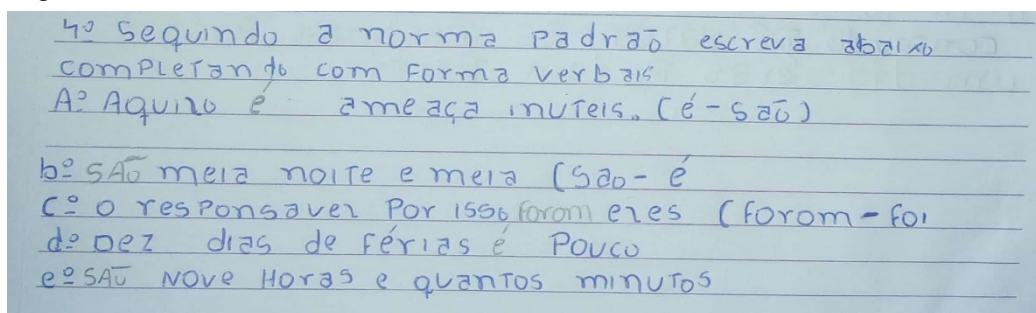 4º Sequindo a norma Padrão escreva abaixo
completando com Forma verbais
Aº Aquilo é ameaça inuteis. (é-são)
bº SÃO meia noite e meia (São - é
Cº O responsavel Por isso forom eles (forom - foi
dº Dez dias de Férias é Pouco
eº SÃO Nove Horas e quantos minutos